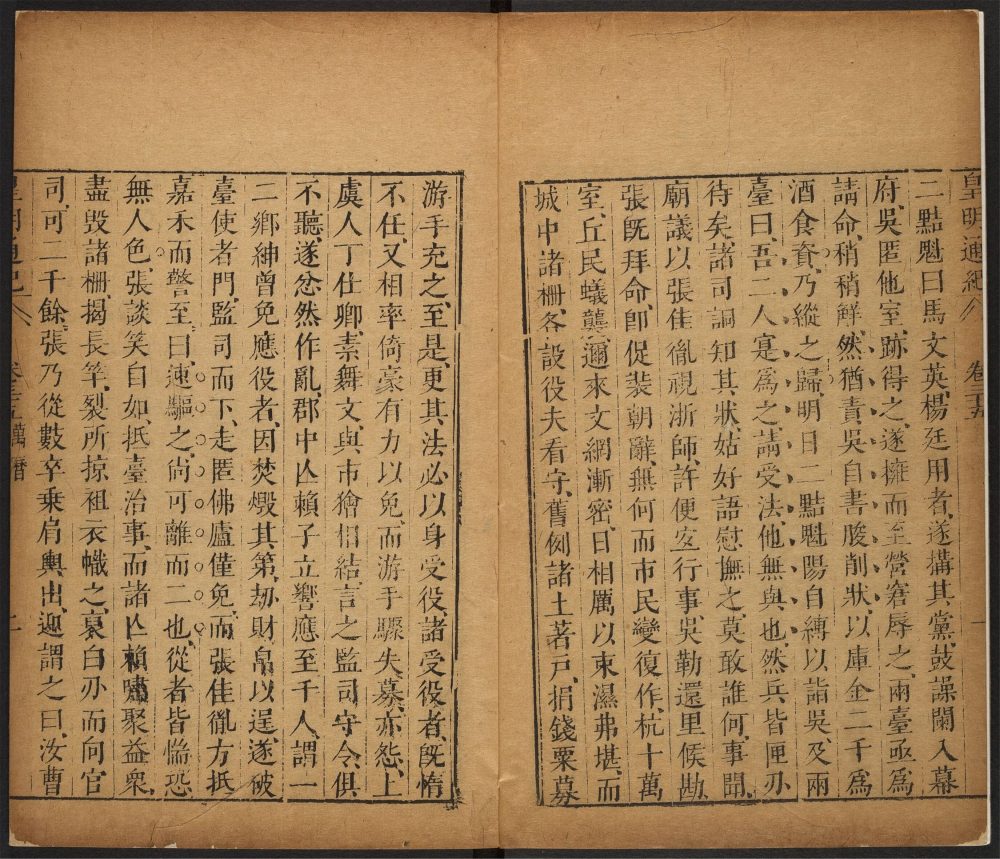 皇明通紀
卷三十五
一
二點魁曰馬文英楊廷用者、遂搆其黨、鼓譟闌入幕
府、吳匿他室、跡得之、遂擁而至營窘辱之、兩臺亟爲
請命、稍稍解、然猶責吳自書朘削狀、以庫金二千爲
酒食資、乃縱之歸、明日二點魁陽自縛以詣吳、及兩
臺曰、吾二人寔爲之、請受法、他無與也、然兵皆匣刃
待矣、諸司詗知其狀、姑好語慰撫之、莫敢誰何、事聞、
廟議以張佳胤視浙師、許便宜行事、吳勒還里候勘、
張旣拜命、卽促裝朝辭、無何而市民變復作、杭十萬
室、丘民蟻襲、邇來文網漸密、日相厲以束濕弗堪、而
城中諸柵、各設役夫看守、舊例諸土著戶、捐錢粟募
游手充之、至是、更其法必以身受役、諸受役者、旣惰
不任、又相率倚豪有力以免、而游手驟失募、亦怨、上
虞人丁仕卿、素舞文、與市獪相結、言之監司守令、俱
不聽、遂忿然作亂、郡中亾賴子立響應至千人、謂一
二鄉紳曾免應役者、因焚燬其第、劫財帛以逞、遂破
臺使者門、監司而下、走匿佛廬僅免、而張佳胤方抵
嘉禾而警至、曰速驅之、尙可離而二也、從者皆惴恐
無人色、張談笑自如、抵臺治事、而諸亾賴嘯聚益衆、
盡毁諸柵、揭長竿、裂所掠袒衣幟之、裹白刃而向官
司、可二千餘、張乃從數卒乗肩輿出、迎謂之曰、汝曹
皇明通紀
卷三十五 萬曆
二